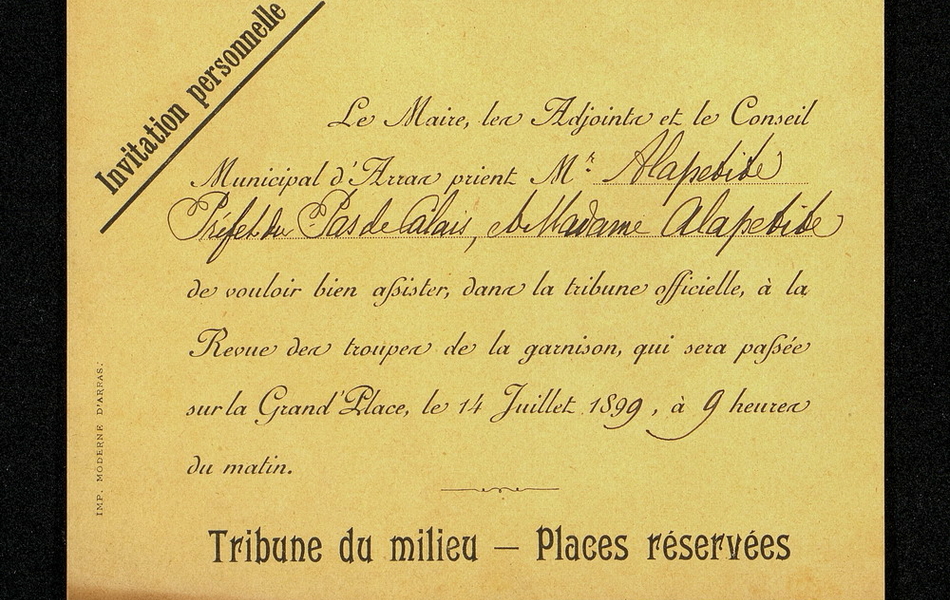 Invitation personnelle
Le Maire, les Adjoints et le Conseil
Municipal d'Arras prient Mr Alapetite
Préfet du Pas de Calais, et Madame Alapetite
de vouloir bien assister, dans la tribune officielle, à la
Revue des troupes de la garnison, qui sera passée
sur la Grand'Place, le 14 Juillet 1899, à 9 heures
du matin.
Tribune du milieu — Places réservées
IMP. MODERNE D'ARRAS.